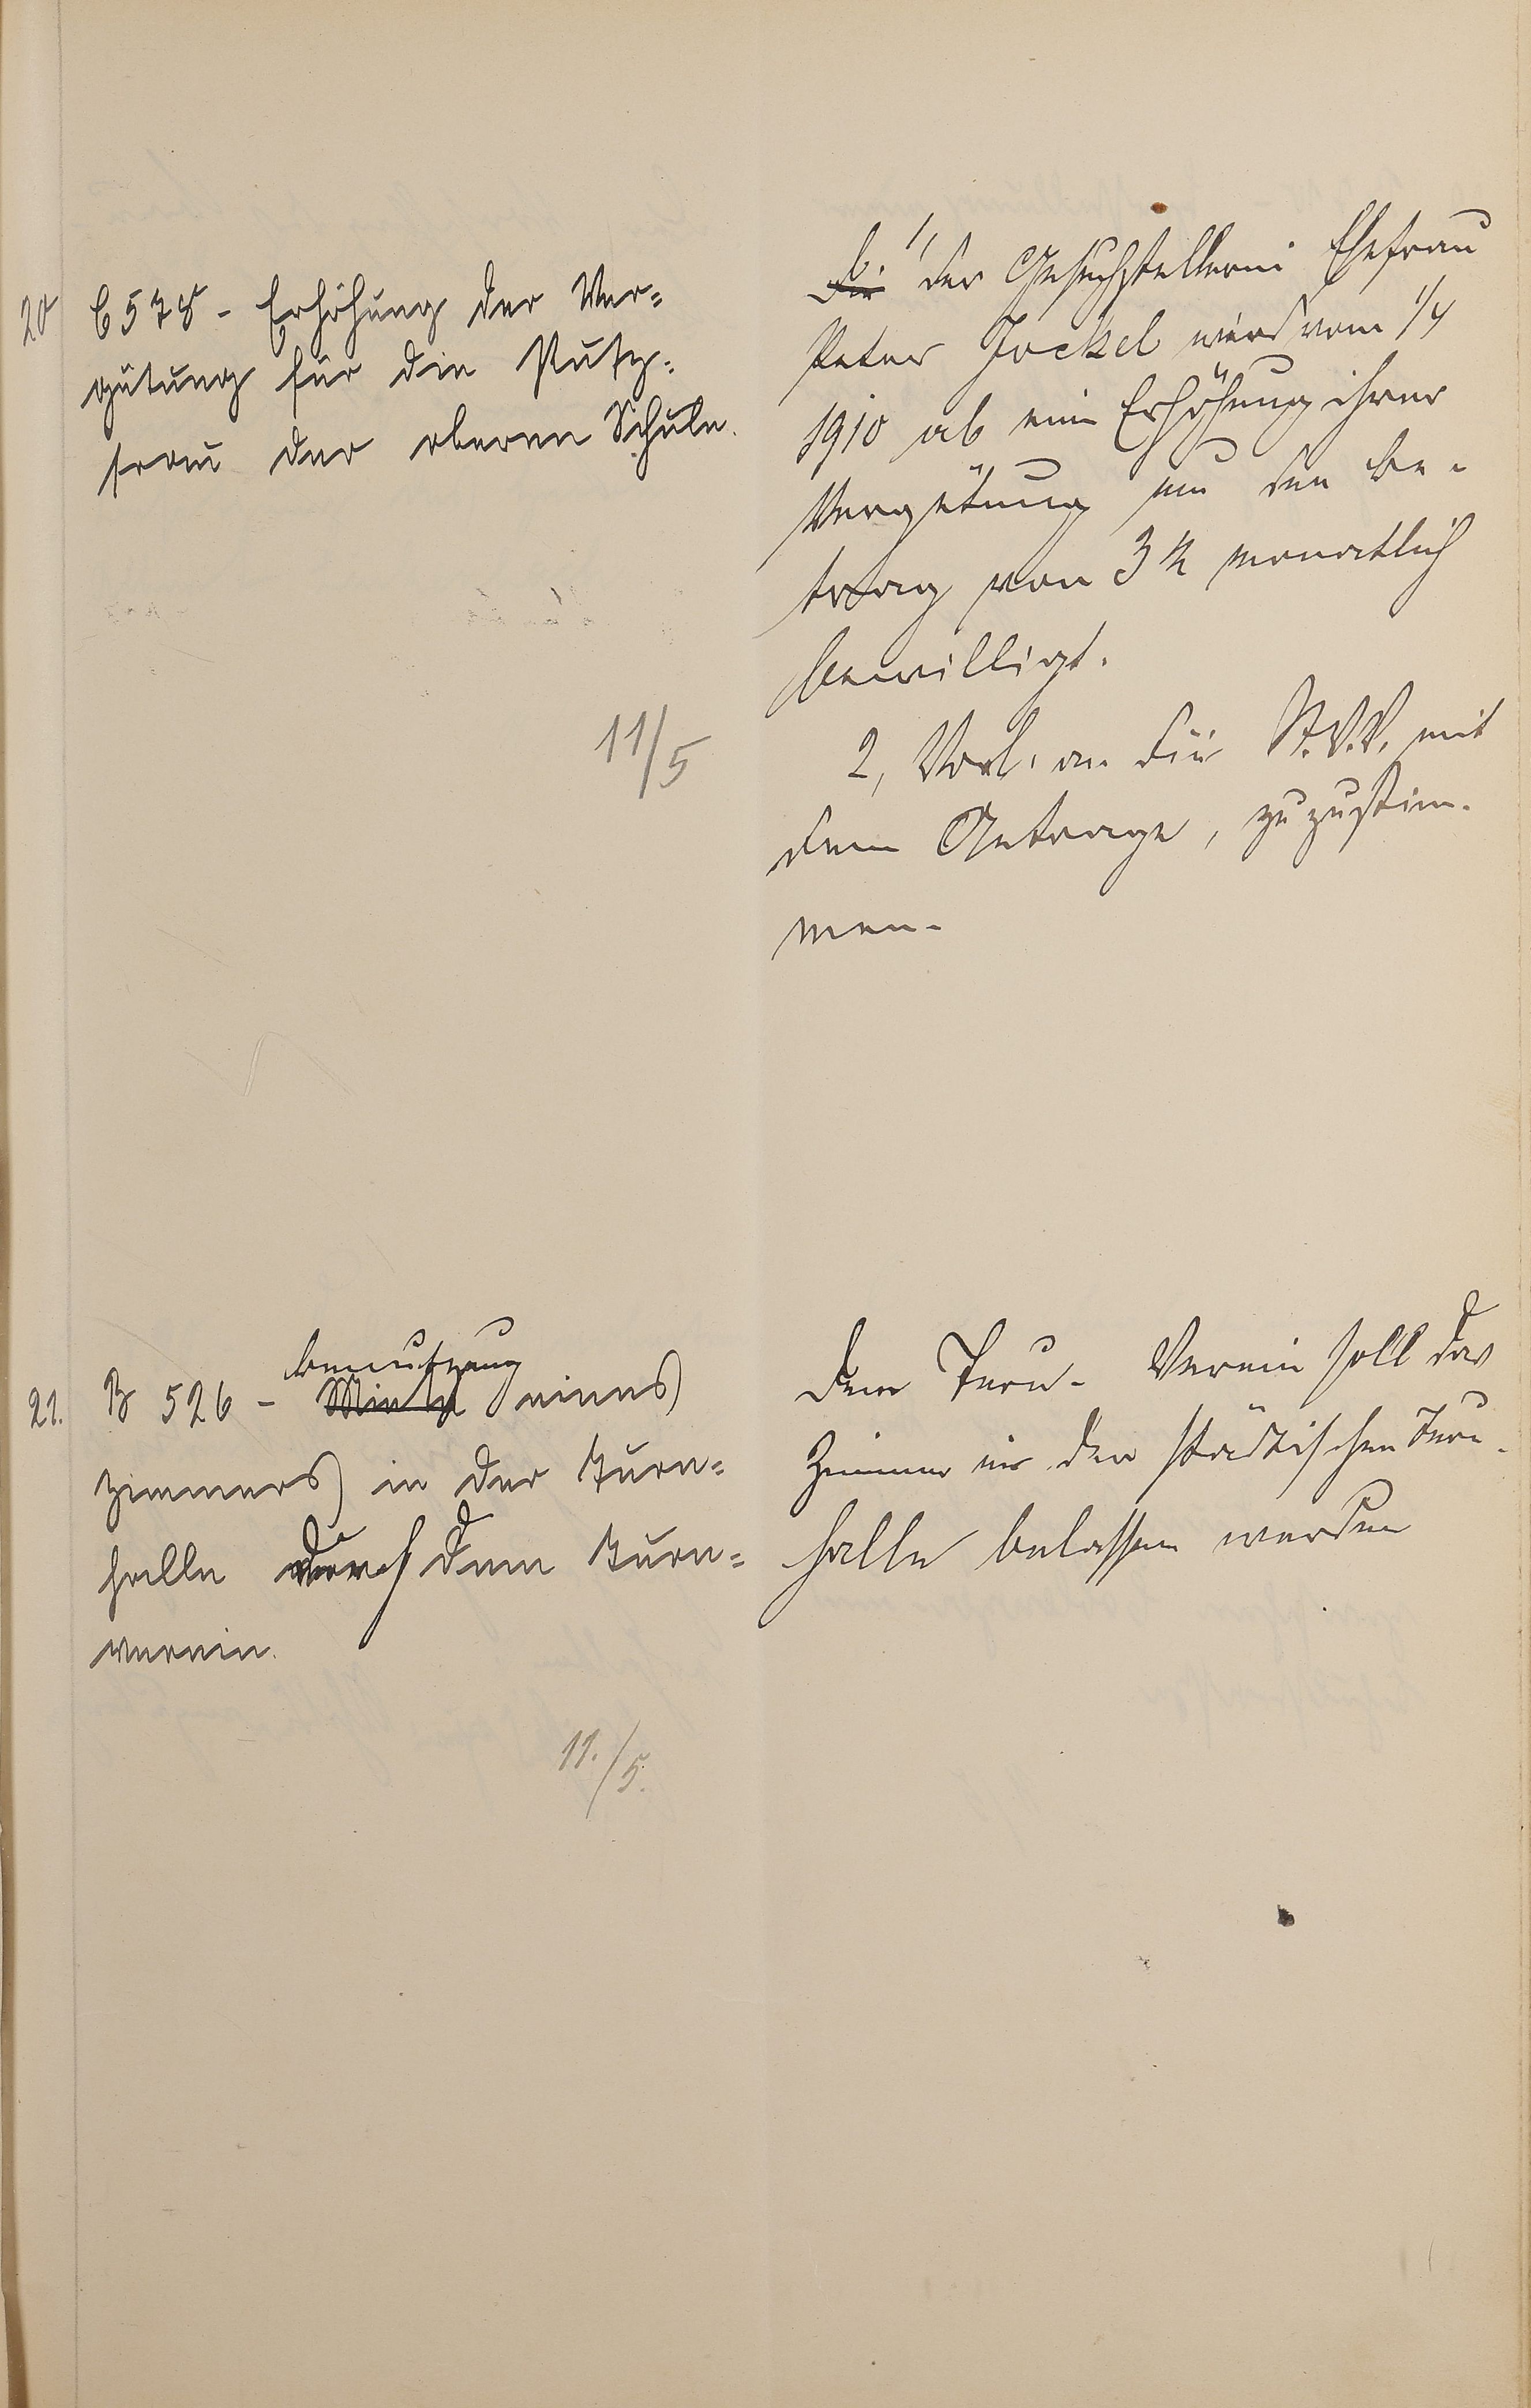 20 C 578 - Erhöhung der Ver=
gütung für die Putz=
frau der oberen Schule.
11/5
1,
Die der Gesuchstellerin Ehefrau
Peter Jockel wird vom 1/4
1910 ab eine Erhöhung ihrer
Vergütung um den Be-
trag von 3 M monatlich
bewilligt.
2, Vorl. an die St.V.V. mit
dem Antrage, zuzustim-
men.
21. B 526 - Miete Benutzung eines
Zimmers in der Turn=
halle durch den Turn=
verein.
11./5.
Dem Turn-Verein soll das
Zimmer in der städtischen Turn-
halle belassen werden